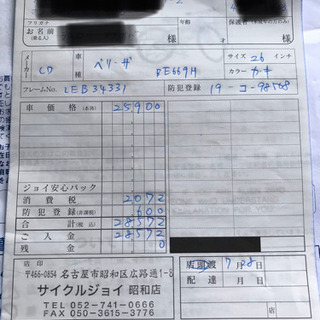 フリガナ
お名前
年齢
才
保護者
様
様
メーカー CD 車種 ベリーザ BE669H サイズ 26 インチ カラー カーキ
フレームNo. LEB34331 防犯登録 19-コ-
車両価格(本体) 25900
ジョイ安心パック
消費税 2072
防犯登録(非課税) 600
合計(税込) 28572
ご入金 28572
残金 0
店印
店頭渡 7月8日
〒466-0854 名古屋市昭和区広路通1-8
配達 月 日
サイクルジョイ 昭和店
TEL 052-741-0666
FAX 050-3615-3776